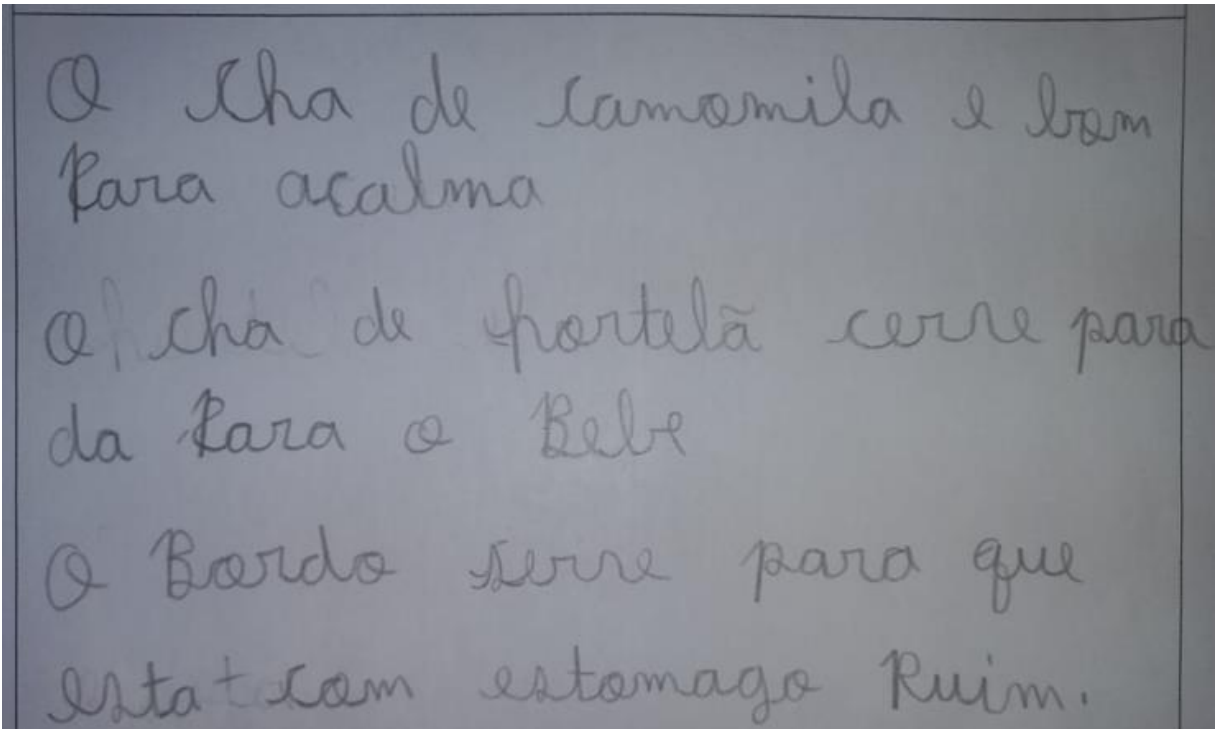 O Cha de camomila e bom
Para acalma
O cha de hortelã cerve para
da Para o Bebe
O Bordo serve para que
esta com estomago Ruim.